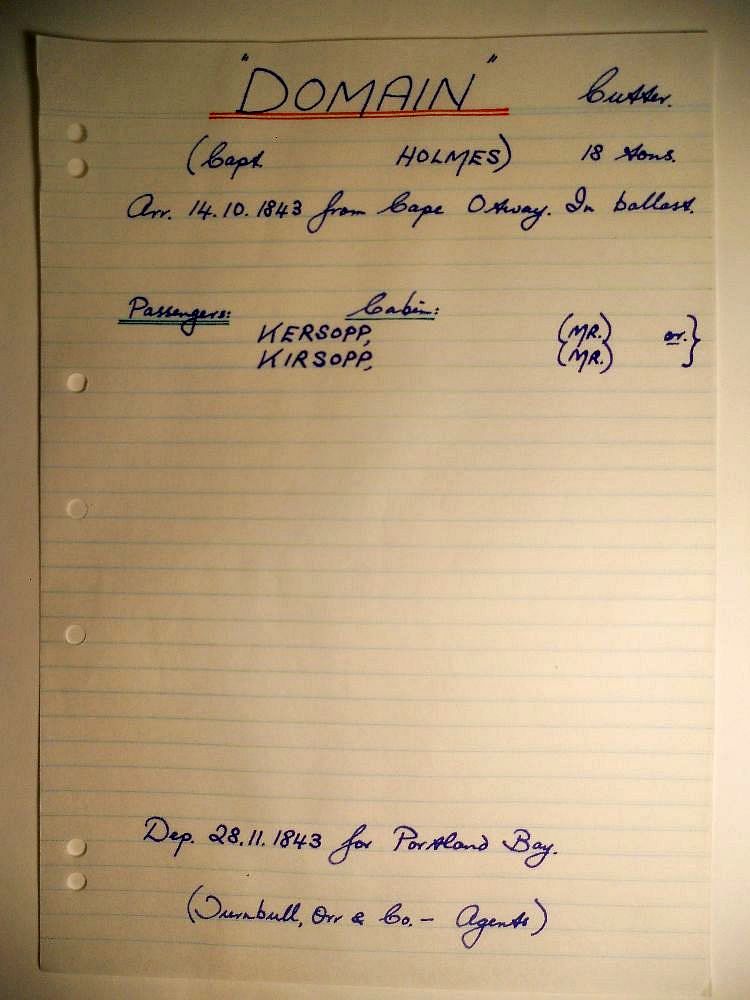 "DOMAIN" Cutter.
(Capt. HOLMES) 18 tons.
Arr. 14.10.1843 from Cape Otway. In ballast.
Passengers: Cabin:
KERSOPP, (MR.) or.}
KIRSOPP, (MR.)
Dep. 28.11.1843 for Portland Bay.
(Turnbull, Orr & Co. - Agents)